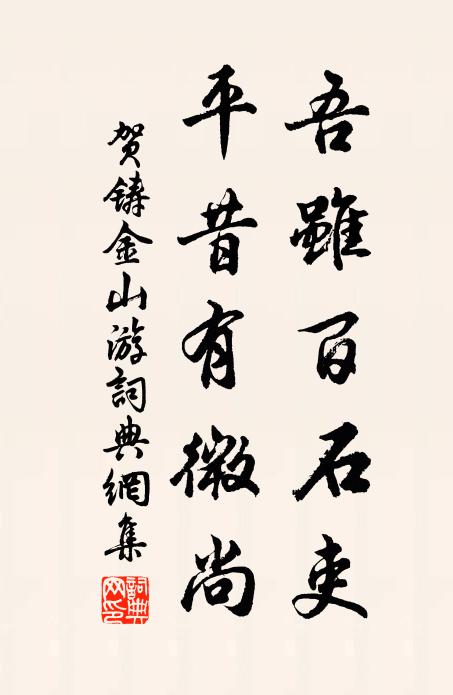 吾雖百石吏
平昔有微尚
賀鑄金山游詞典網集
詞典網印